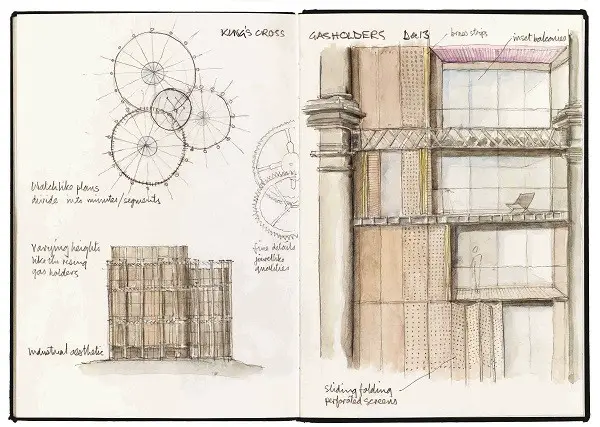 KING'S CROSS GASHOLDERS Dec 13
brass strips
inset balconies
Watchlike plans
divide into minutes/segments
Varying heights
like the rising
gas holders
fine details
jewel like
qualities
Industrial aesthetic
sliding folding
perforated screens